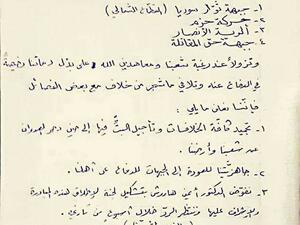 ١- جبهة ثوار سوريا (القطاع الشمالي)
٢- حركة حزم
٣- ألوية الأنصار
٤- جبهة حق المقاتلة
ونزولاً عند رغبة شعبنا ومعاهدين الله على بذل دمائنا رخيصة
في الدفاع عنه وتلافي ما شجر من خلاف مع بعض الفصائل
فإننا نعلن ما يلي:
١- تجميد كافة الخلافات وتأجيل البتّ فيها إلى حين دحر العدوان
عن شعبنا وأرضنا.
٢- جاهزيتنا للعودة إلى الجبهات للدفاع عن أهلنا.
٣- نفوض الدكتور أيمن هاروش بتشكيل لجنة لإطلاق هذه المبادرة
والإشراف عليها وننتظر الرد خلال أسبوع من تاريخه.